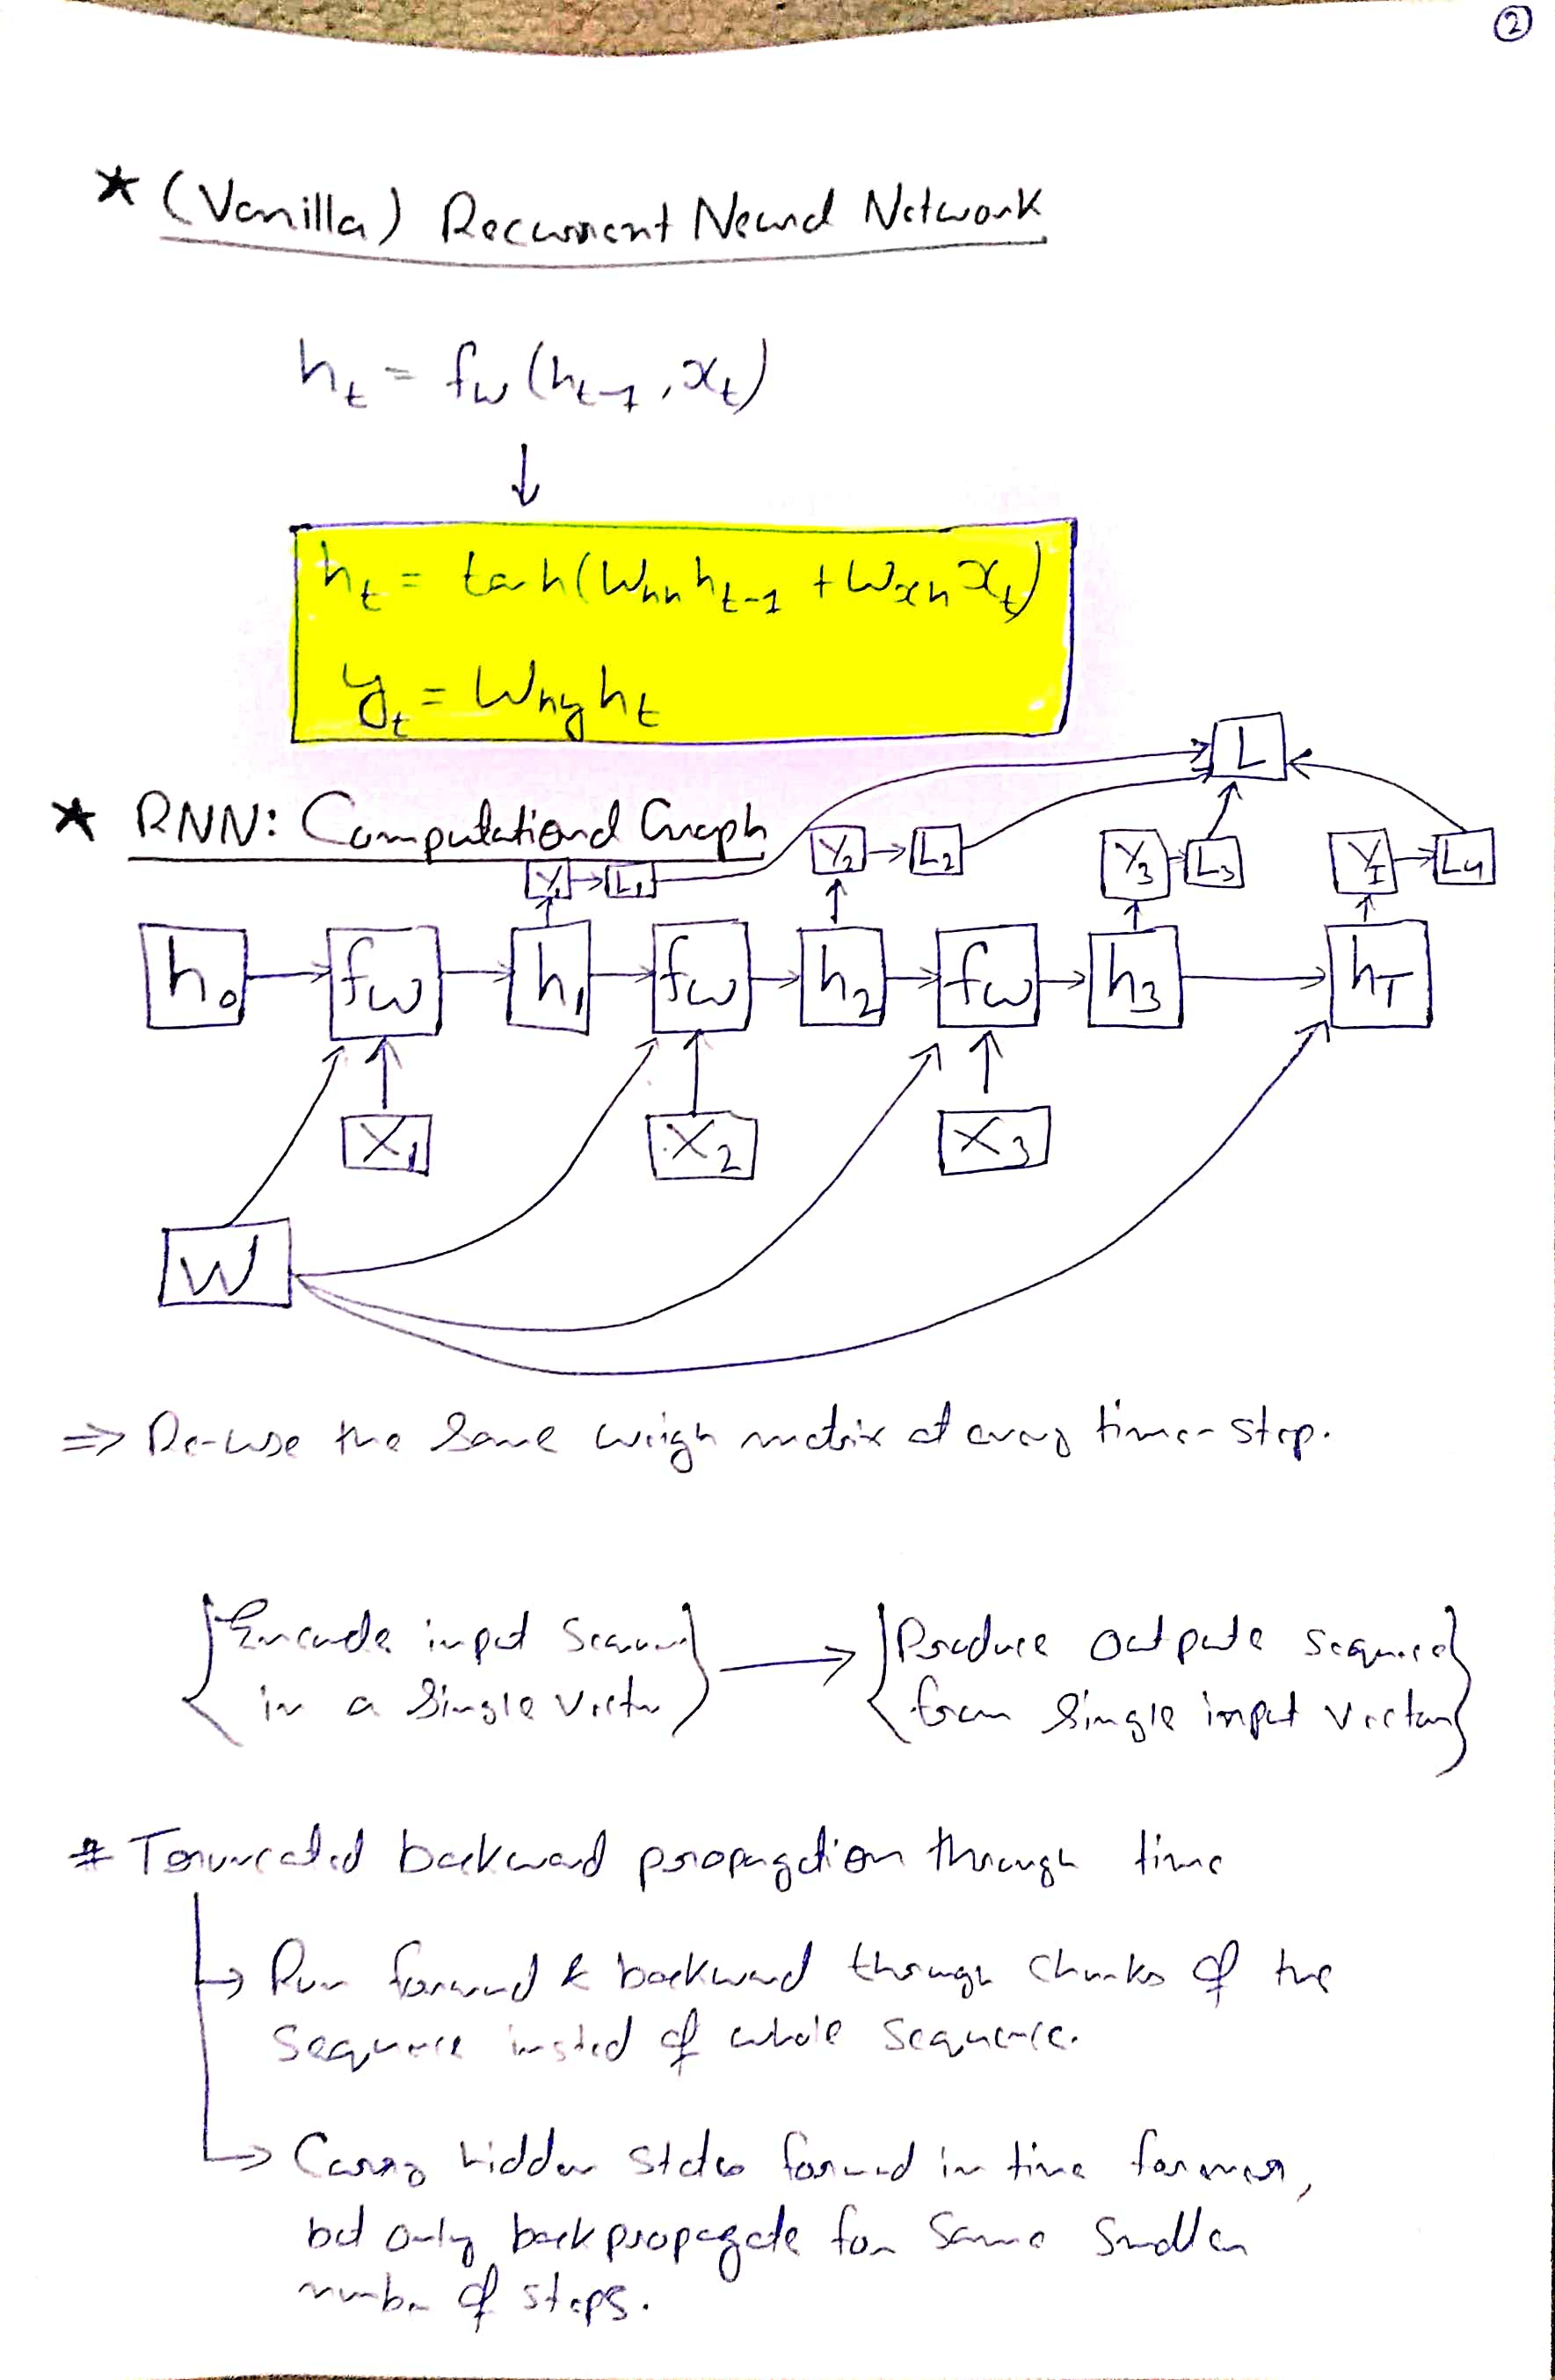 ②
* (Vanilla) Recurrent Neural Network
h_t = f_w (h_{t-1}, x_t)
↓
h_t = tanh(W_hh h_{t-1} + W_xh x_t)
y_t = W_hy h_t
L
* RNN: Computational Graph
Y_1 → L_1 Y_2 → L_2 Y_3 → L_3 Y_T → L_4
h_0 → f_w → h_1 → f_w → h_2 → f_w → h_3 → h_T
X_1 X_2 X_3
W
⇒ Re-use the same weigh matrix at every time-step.
{Encode input → {Produce outpute sequence}
in a single vector} from single input vector}
# Truncated backward propagation through time
→ Run forward & backward through chunks of the
sequence insted of whole sequence.
→ Carry hidden states forward in time forever,
but only backpropagate for some smaller
number of steps.